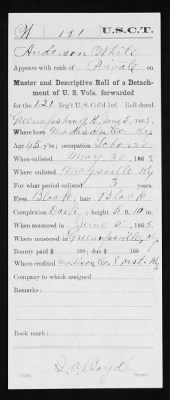 W 121 U.S.C.T.
Anderson White
Appears with rank of Private on
Muster and Descriptive Roll of a Detach-
ment of U. S. Vols. forwarded
for the 121 Reg't U. S. Col'd Inf. Roll dated
June 5, 1865.
Where born Madison Co. Ky
Age 45 y'rs; occupation Laborer
When enlisted May 30, 1865
Where enlisted Maysville Ky
For what period enlisted 3 years.
Eyes Black; hair Black
Complexion Dark; height 5 ft. 10 in.
When mustered in June 5, 1865
Where mustered in
Bounty paid $ 100; due $ 100
Where credited Madison Co. 8 Dist. Ky
Company to which assigned
Remarks:
Book mark:
Boyd